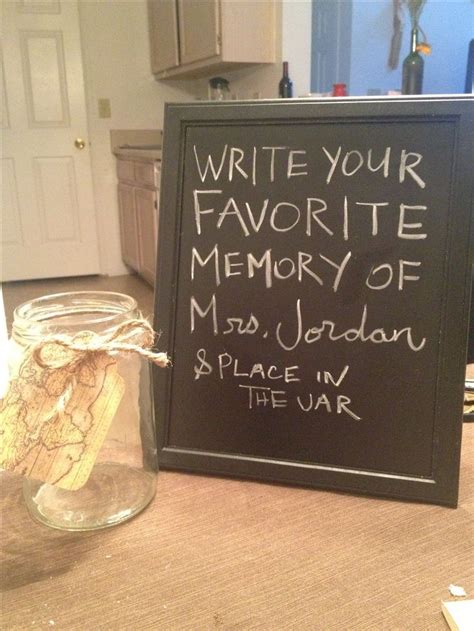 WRITE YOUR
FAVORITE
MEMORY OF
Mrs. Jordan
& PLACE IN
THE JAR